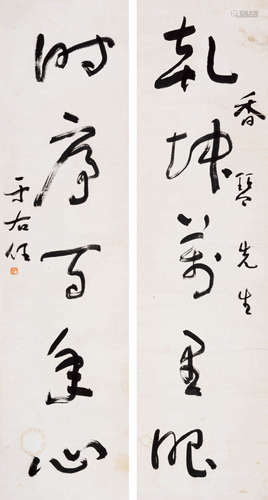 香琴先生
乾坤萬里眼
時序百年心
于右任